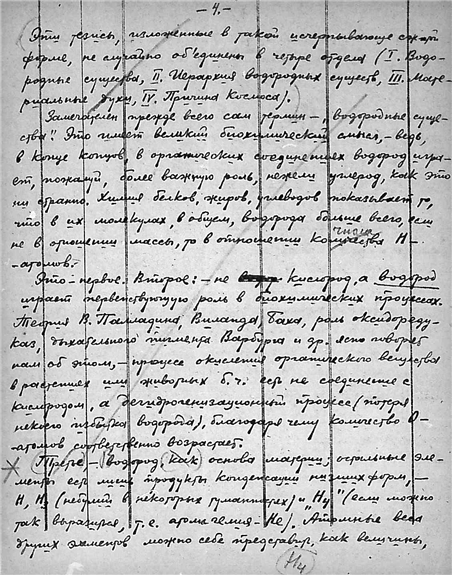 - 4. -
Эти тезисы, изложенные в такой исчерпывающе сжатой
форме, не случайно об'единены в четыре отдела (I. Водо-
родные существа, II. Иерархия водородных существ, III. Мате-
риальные духи, IV. Причина Космоса).
Замечателен прежде всего сам термин — "водородные суще-
ства". Это имеет великий биохимический смысл, - ведь,
в конце концов, в органических соединениях водород игра-
ет, пожалуй, более важную роль, нежели углерод, как это
ни странно. Химия белков, жиров, углеводов показывает то,
что в их молекулах, в общем, водорода больше всего, если
не в отношении массы, то в отношении числа H-
-атомов.
Это - первое. Второе: - не кислород, а водород
играет первенствующую роль в биохимических процессах.
Теория В. Палладина, Виланда, Баха, роль оксидореду-
каз, дыхательного пигмента Варбурга и др. ясно говорят
нам об этом, - процесс окисления органического вещества
в растениях или животных б.ч. есть не соединение с
кислородом, а дегидрогенизационный процесс (потеря
некоего избытка водорода), благодаря чему количество O-
атомов соответственно возрастает.
* Третье - Водород, как основа материи; остальные эле-
менты есть лишь продукты конденсации низших форм, -
H, H₃ (небулий в некоторых туманностях) и "H₄" (если можно
так выразиться, т.е. атома гелия - He). Атомные веса
других элементов можно себе представить, как величины,
H₄